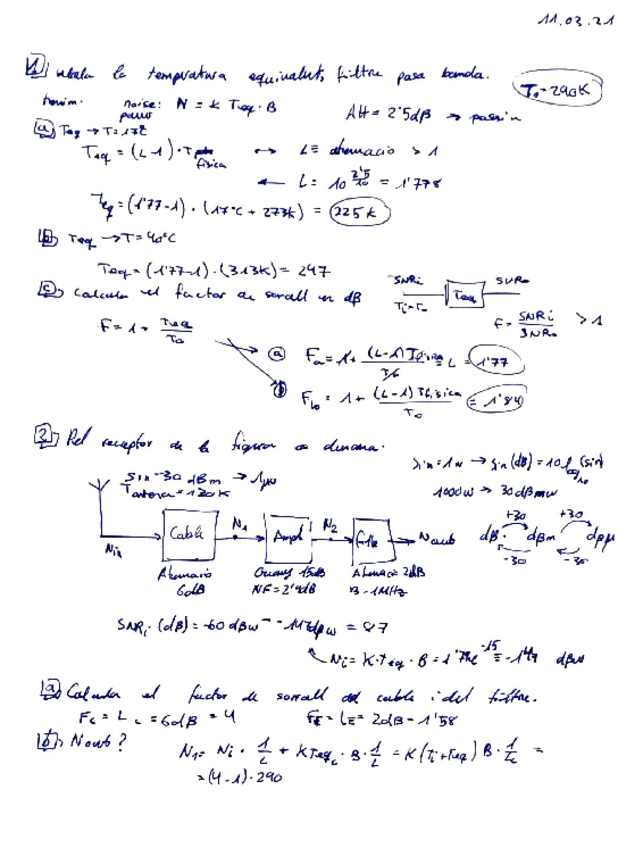 11.03.21
1 Calcula la temperatura equivalent, filtre pasa banda. T₀=290K
noise: N = k Teq·B Att = 2'5dB → passiu
a) Teq → T=17ºC
Teq = (L-1)·T física ↔ L ≡ atenuació > 1
← L = 10^(2'5/10) = 1'778
Teq = (1'77-1)·(17ºC + 273K) = 225 K
b) Teq → T=40ºC
Teq = (1'77-1)·(313K) = 247
c) Calcula el factor de soroll en dB
SNRi Teq SNRo
Ti=T₀
F = 1 + Teq/T₀ F = SNRi/SNRo > 1
a) Fa = 1 + (L-1)Tfísica/T₀ = L = 1'77
b) Fb = 1 + (L-1)Tfísica/T₀ = 1'84
2) Pel receptor de la figura es demana:
Sin = -30 dBm → 1μW Sin=1W → Sin(dB) = 10 log₁₀(Sin)
Tantena = 130K
Nin Cable N1 Ampl N2 Filtre Nout
dB dBm dBμ
+30 +30
-30 -30
Atenuació 6dB
Guany 15dB
NF = 2'4dB
Atenuació 2dB
B = 1MHz
SNRi (dB) = -60 dBw - -147dBw = 87
a) Calcula el factor de soroll del cable i del filtre.
Fc = Lc = 6dB = 4 FF = LF = 2dB = 1'58
b) Nout?
N1 = Ni · 1/L + K Teqc · B · 1/L = K(Ti+Teq) B · 1/Lc =
= (4-1)·290